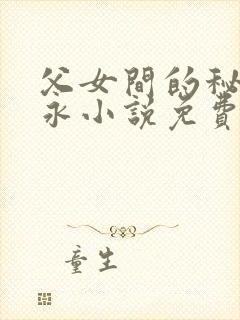 父女間的秘
永小說免費
童生